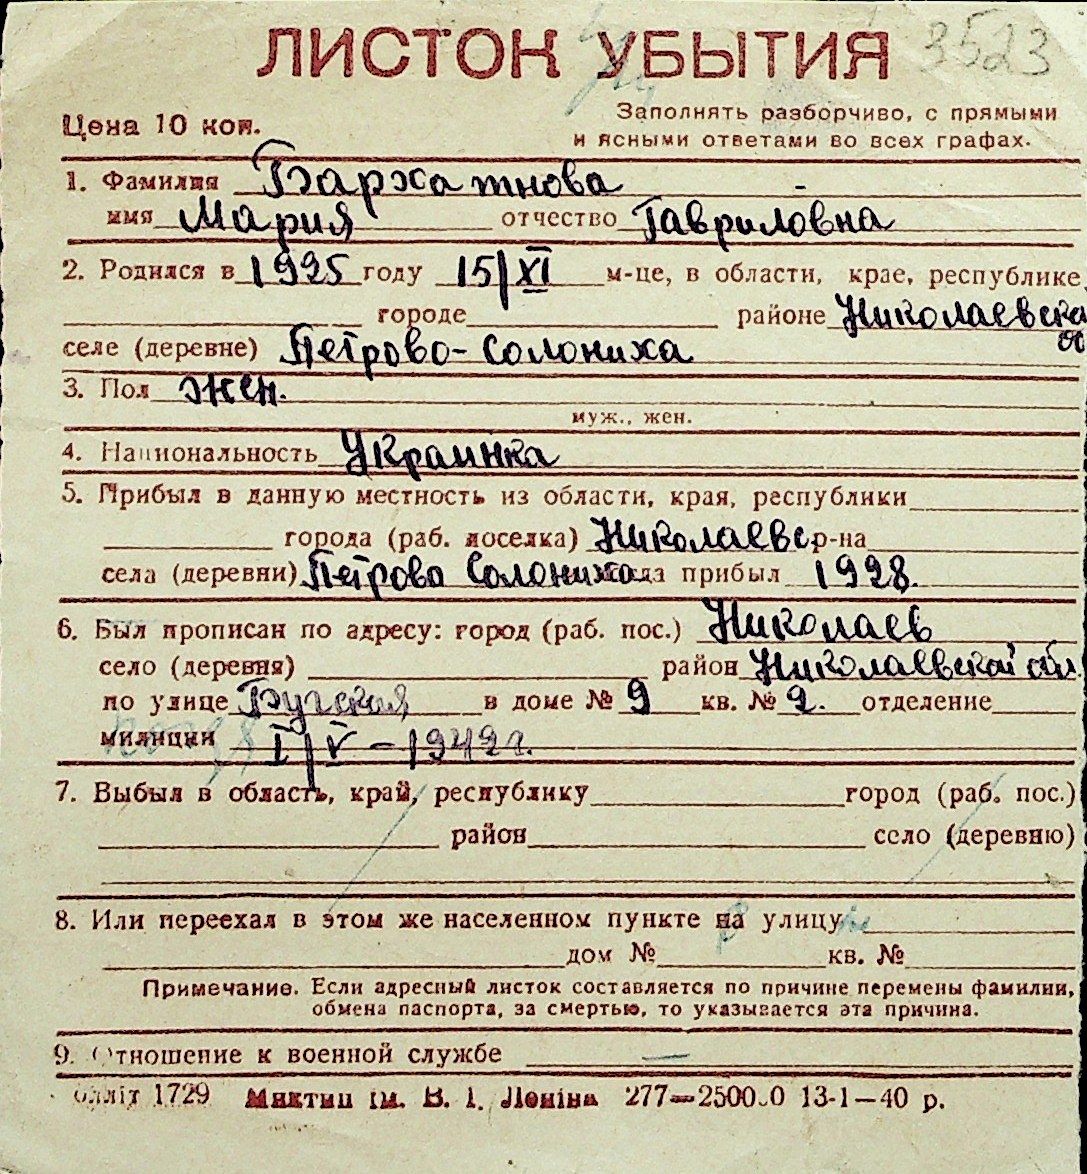 3523
ЛИСТОК УБЫТИЯ
Цена 10 коп.
Заполнять разборчиво, с прямыми
и ясными ответами во всех графах.
1. Фамилия Бархатнова
имя Мария отчество Гавриловна
2. Родился в 1925 году 15/XI м-це, в области, крае, республике
городе районе Николаевска
селе (деревне) Петрово-Солониха
3. Пол жен.
муж., жен.
4. Национальность Украинка
5. Прибыл в данную местность из области, края, республики
города (раб. поселка) Николаевс. р-на
села (деревни) Петрово Солониха прибыл 1928.
6. Был прописан по адресу: город (раб. пос.) Николаев
село (деревня) район Николаевской обл.
по улице Бугская в доме № 9 кв. № 2. отделение
милиции I/V – 1942 г.
7. Выбыл в область, край, республику город (раб. пос.)
район село (деревню)
8. Или переехал в этом же населенном пункте на улицу
дом № кв. №
Примечание. Если адресный листок составляется по причине перемены фамилии,
обмена паспорта, за смертью, то указывается эта причина.
9. Отношение к военной службе —
облліт 1729 Миктип ім. В. І. Леніна 277—25000 13-1—40 р.